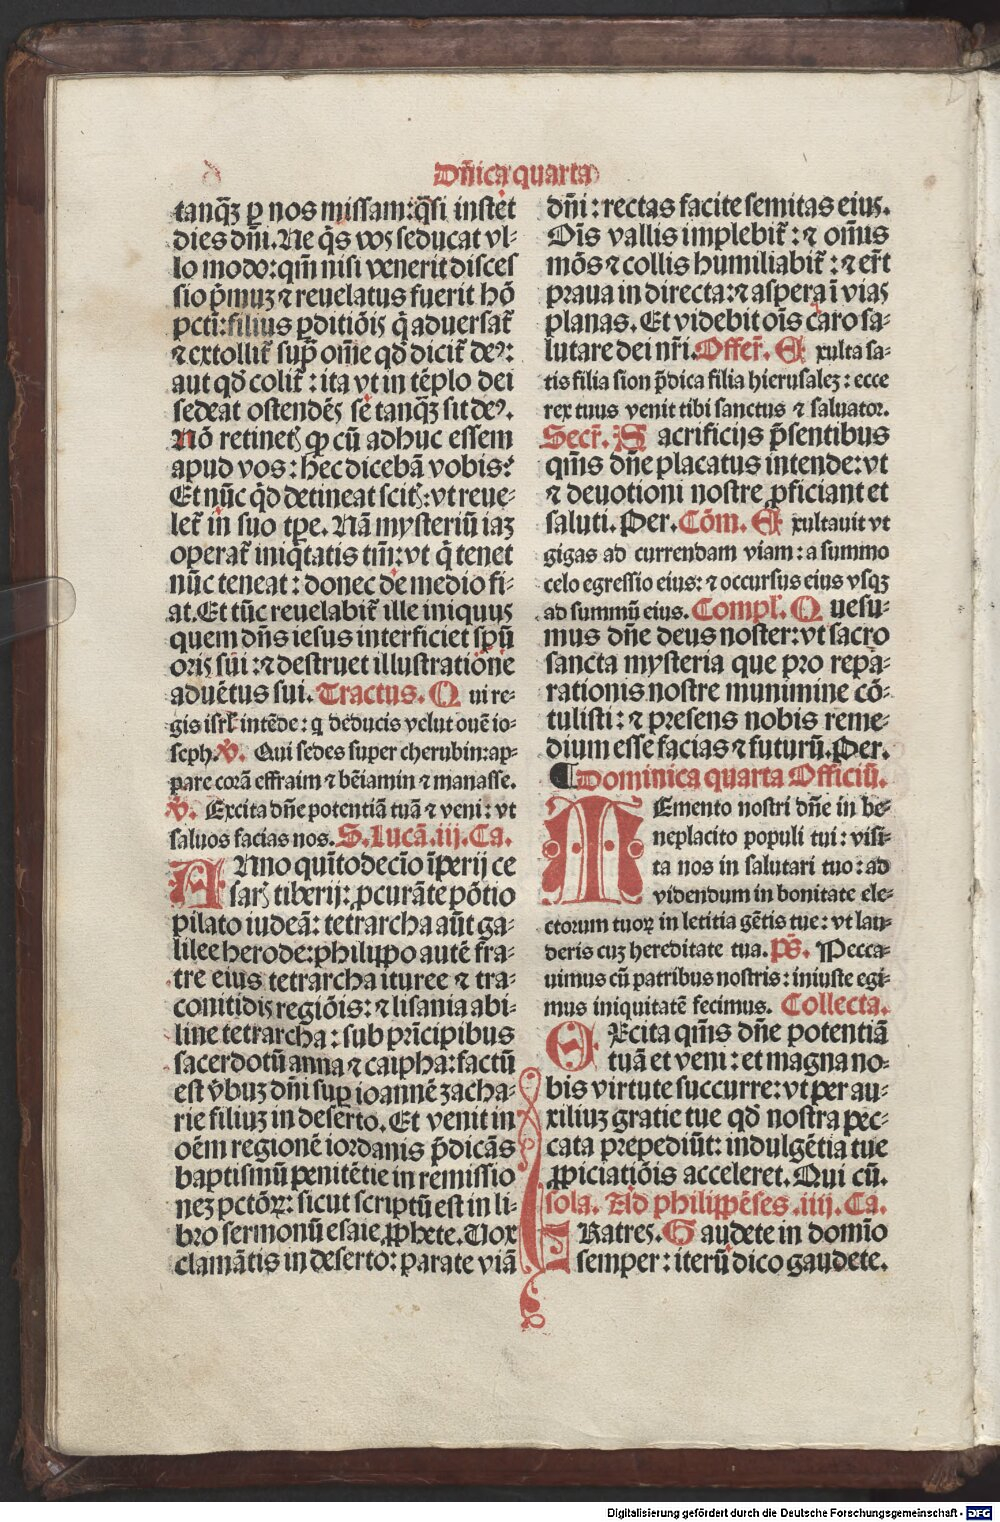 Dñica quarta
tanq̃ꝫ ꝑ nos missam:q̃si instẽt
dies dñi.Ne q̃s vos seducat vl⸗
lo modo:qm̃ nisi venerit disces
sio p̃muꝫ ⁊ reuelatus fuerit hõ
pcti:filius ꝑditiõis q̃ aduersat᷑
⁊ extollit᷑ sup̃ om̃e qd̃ dicit᷑ deꝰ:
aut qd̃ colit᷑ : ita vt in tẽplo dei
sedeat ostendẽs sẽ tanq̃ꝫ sit deꝰ.
Nõ retinetꝭ ꝙ cũ adhuc essem
apud vos : hec dicebã vobis:
Et nũc q̃d detineat scitꝭ:vt reue⸗
let᷑ in suo tp̃e. Nã mysteriũ iaꝫ
operat᷑ iniq̃tatis tm̃:vt q̃ tenet
nũc teneat : donec de medio fi⸗
at.Et tũc reuelabit᷑ ille iniquus
quem dñs iesus interficiet sp̃ũ
oris sui :⁊ destruet illustratiõne
aduẽtus sui. Tractus. Q ui re⸗
gis isrl̃ intẽde : q deducis velut ouẽ io⸗
seph. ℣. Qui sedes super cherubin:ap⸗
pare corã effraim ⁊ bẽiamin ⁊ manasse.
℣. Excita dñe potentiã tuã ⁊ veni : vt
saluos facias nos. S. Lucã .iij. Ca.
ANno quĩtodecĩo ĩperij ce
sarꝭ tiberij: ꝓcurãte põtio
pilato iudeã: tetrarcha aũt ga⸗
lilee herode:philippo autẽ fra⸗
tre eius tetrarcha ituree ⁊ tra⸗
conitidis regiõis: ⁊ lisania abi⸗
line tetrarcha : sub prĩcipibus
sacerdotũ anna ⁊ caipha: factũ
est v̾buꝫ dñi suꝑ ioannẽ zacha⸗
rie filiuꝫ in deserto. Et venit in
oẽm regionẽ iordanis p̃dicãs
baptismũ penitẽtie in remissio
neꝫ pctõꝝ: sicut scriptũ est in li⸗
bro sermonũ esaie ꝓphete. Uox
clamãtis in deserto: parate viã
dñi : rectas facite semitas eius.
Oĩs vallis implebit᷑ : ⁊ om̃is
mõs ⁊ collis humiliabit᷑ : ⁊ er̃t
praua in directa:⁊ aspera ĩ vias
planas. Et videbit oĩs caro sa⸗
lutare dei nr̃i. Offer̃. E xulta sa⸗
tis filia sion p̃dica filia hierusaleꝫ : ecce
rex tuus venit tibi sanctus ⁊ saluator.
Secr̃. S acrificijs p̃sentibus
qm̃s dñe placatus intende: vt
⁊ deuotioni nostre ꝓficiant et
saluti. Per. Cõm. E xultauit vt
gigas ad currendam viam : a summo
celo egressio eius: ⁊ occursus eius vsqꝫ
ad summũ eius. Compl̃. Q uesu⸗
mus dñe deus noster: vt sacro
sancta mysteria que pro repa⸗
rationis nostre munimine cõ⸗
tulisti: ⁊ presens nobis reme⸗
dium esse facias ⁊ futurũ. Per.
¶Dominica quarta Officiũ.
MEmento nostri dñe in be⸗
neplacito populi tui : visi⸗
ta nos in salutari tuo : ad
videndum in bonitate ele⸗
ctorum tuoꝝ in letitia gẽtis tue : vt lau⸗
deris cuꝫ hereditate tua. p̃s. Pecca⸗
uimus cũ patribus nostris : iniuste egi⸗
mus iniquitatẽ fecimus. Collecta.
EXcita qm̃s dñe potentiã
tuã et veni : et magna no⸗
bis virtute succurre: vt per au⸗
xiliuꝫ gratie tue qd̃ nostra pec⸗
cata prepediũt: indulgẽtia tue
ꝓpiciatiõis acceleret. Qui cũ.
sola. Ad philippẽses .iiij. Ca.
FRatres. G audete in domĩo
semper : iterũ dico gaudete.
Digitalisierung gefördert durch die Deutsche Forschungsgemeinschaft - DFG